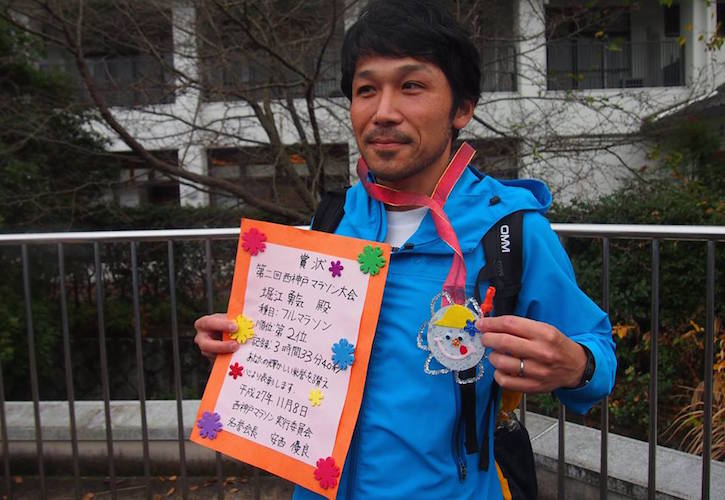 賞状
第二回西神戸マラソン大会
堀江 勇気 殿
種目:フルマラソン
順位:第2位
記録:3時間33分40秒
あなたの輝かしい栄誉を讃え
心より表彰します
平成27年11月8日
西神戸マラソン実行委員会
名誉会長 安西 優良
OMM